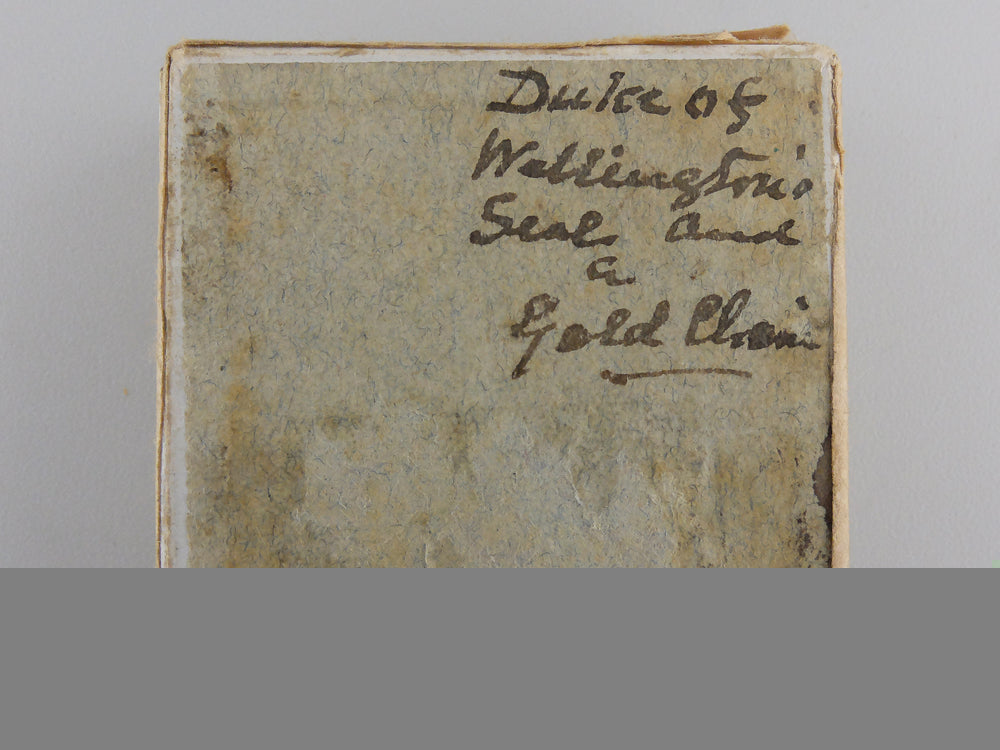 Duke of
Wellington's
Seal and
a
Gold Chain